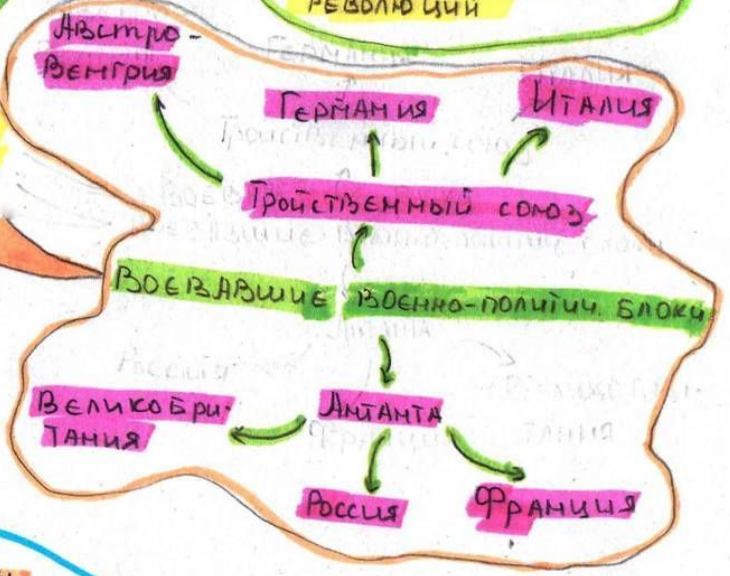 РЕВОЛЮЦИИ
АВСТРО-
ВЕНГРИЯ
ГЕРМАНИЯ
ИТАЛИЯ
ТРОЙСТВЕННЫЙ СОЮЗ
ВОЕВАВШИЕ ВОЕННО-ПОЛИТИЧ. БЛОКИ
ВЕЛИКОБРИ-
ТАНИЯ
АНТАНТА
РОССИЯ
ФРАНЦИЯ